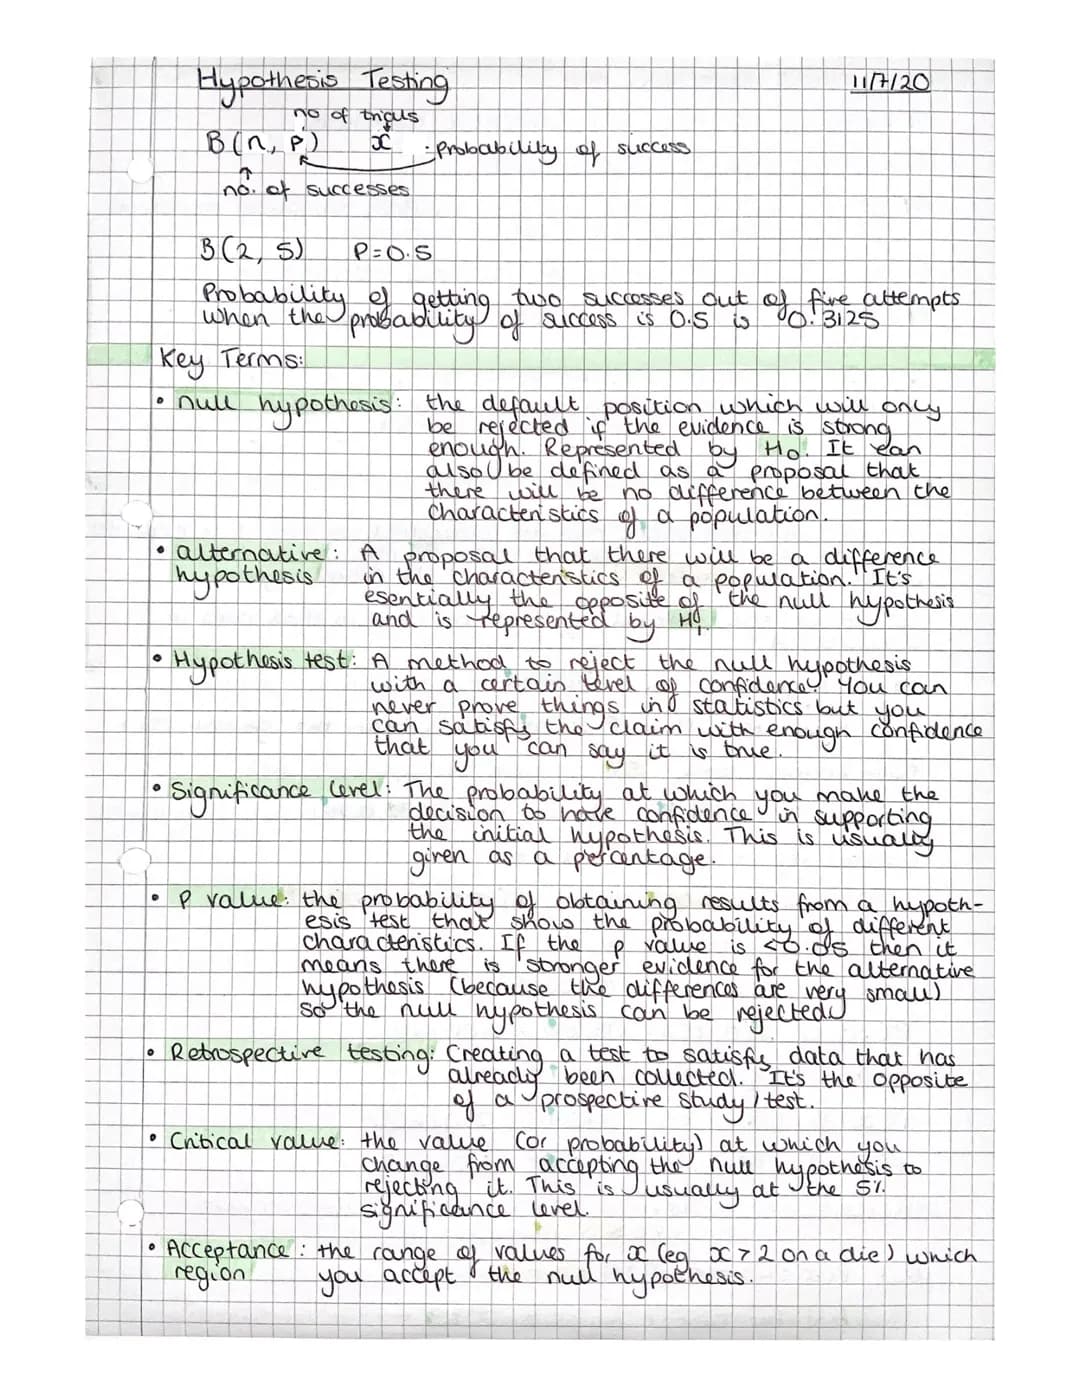 Hypothesis Testing 11/7/20
no of trials
B(n, p) x · probability of success
no. of successes
B(2, 5) P=0.5
Probability of getting two successes out of five attempts
when the probability of success is 0.5 is 0.3125
Key Terms:
• null hypothesis: the default position which will only
be rejected if the evidence is strong
enough. Represented by H0. It can
also be defined as a proposal that
there will be no difference between the
characteristics of a population.
• alternative: A proposal that there will be a difference
hypothesis in the characteristics of a population. It's
esentially the opposite of the null hypothesis
and is represented by H1.
• Hypothesis test: A method to reject the null hypothesis
with a certain level of confidence. You can
never prove things in statistics but you
can satisfy the claim with enough confidence
that you can say it is true.
• Significance level: The probability at which you make the
decision to have confidence in supporting
the initial hypothesis. This is usually
given as a percentage.
• P value: the probability of obtaining results from a hypoth-
esis test that show the probability of different
characteristics. If the p value is <0.05 then it
means there is stronger evidence for the alternative
hypothesis (because the differences are very small)
so the null hypothesis can be rejected.
• Retrospective testing: Creating a test to satisfy data that has
already been collected. It's the opposite
of a prospective study/test.
• Critical value: the value (or probability) at which you
change from accepting the null hypothesis to
rejecting it. This is usually at the 5%
significance level.
• Acceptance: the range of values for x (eg x>2 on a die) which
region you accept the null hypothesis.